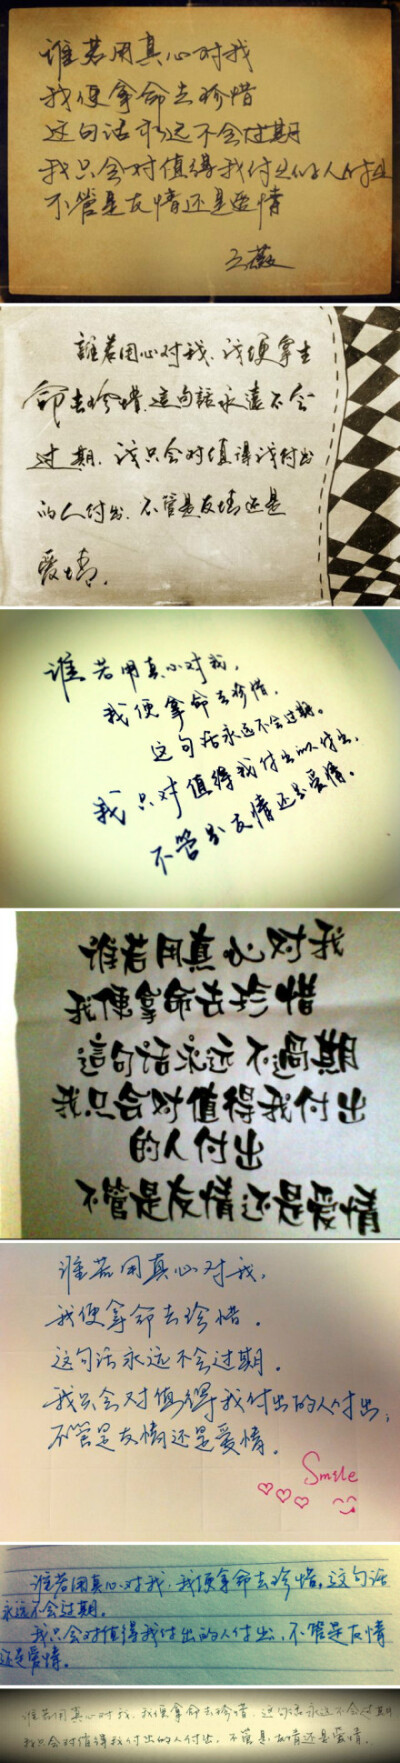 谁若用真心对我
我便拿命去珍惜
这句话永远不会过期
我只会对值得我付出的人付出
不管是友情还是爱情
王薇
誰若用心对我，我便拿生
命去珍惜，這句話永遠不会
过期，我只会对值得我付出
的人付出，不管是友情还是
爱情。
谁若用真心对我，
我便拿命去珍惜，
这句话永远不会过期。
我只对值得我付出的人付出，
不管是友情还是爱情。
谁若用真心对我
我便拿命去珍惜
這句话永远不過期
我只会对值得我付出
的人付出
不管是友情还是爱情
谁若用真心对我，
我便拿命去珍惜。
这句话永远不会过期。
我只会对值得我付出的人付出；
不管是友情还是爱情。
Smile
谁若用真心对我，我便拿命去珍惜。这句话
永远不会过期。
我只会对值得我付出的人付出，不管是友情
还是爱情。
谁若用真心对我，我便拿命去珍惜，这句话永远不会过期
我只会对值得我付出的人付出，不管是友情还是爱情。